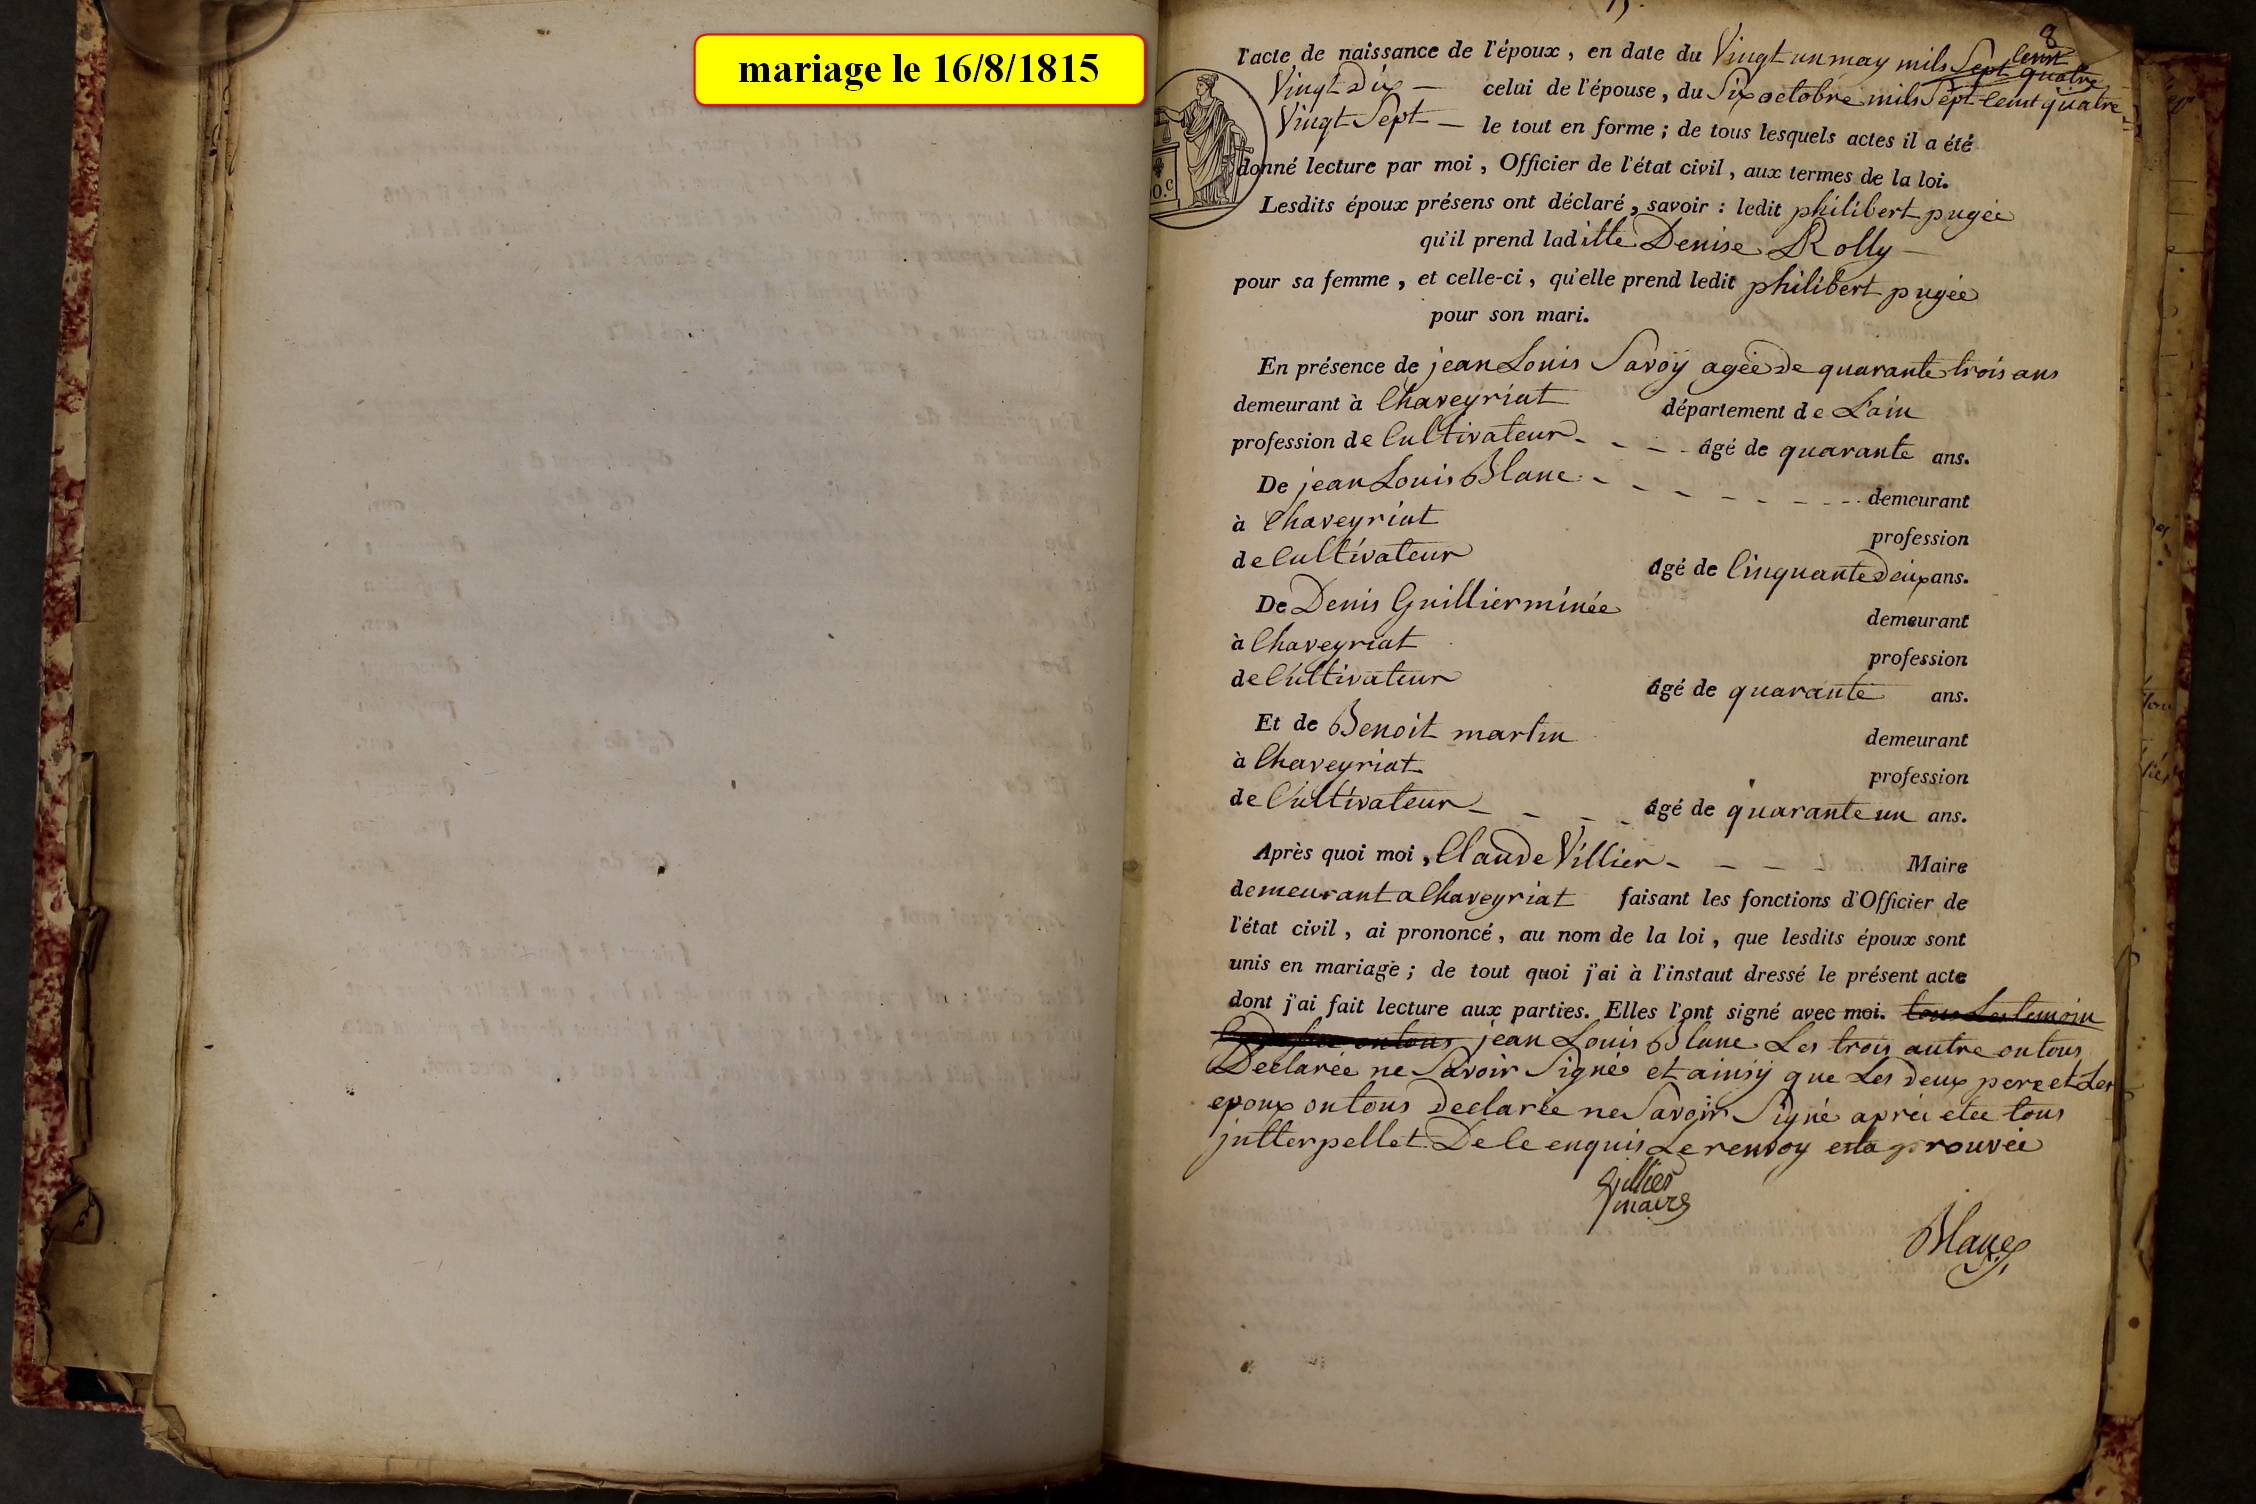 mariage le 16/8/1815
8
l'acte de naissance de l'époux, en date du Vingt un may mils Sept Cent quatre
Vingt Dix — celui de l'épouse, du Six octobre mils Sept Cent quatre
Vingt Sept — le tout en forme ; de tous lesquels actes il a été
donné lecture par moi, Officier de l'état civil, aux termes de la loi.
Lesdits époux présens ont déclaré, savoir : ledit philibert pugée
qu'il prend laditte Denise Rolly —
pour sa femme, et celle-ci, qu'elle prend ledit philibert pugée
pour son mari.
En présence de jean Louis Savoÿ agée De quarante trois ans
demeurant à Chaveyriat département de L'ain
profession de Cultivateur - - - - âgé de quarante ans.
De jean Louis Blanc - - - - - - - - demeurant
à Chaveyriat profession
de Cultivateur âgé de Cinquante Deux ans.
De Denis Guillierminée demeurant
à Chaveyriat profession
de Cultivateur âgé de quarante ans.
Et de Benoit martin demeurant
à Chaveyriat profession
de Cultivateur - - - - âgé de quarante un ans.
Après quoi moi, Claude Villier - - - - Maire
demeurant a Chaveyriat faisant les fonctions d'Officier de
l'état civil, ai prononcé, au nom de la loi, que lesdits époux sont
unis en mariage ; de tout quoi j'ai à l'instaut dressé le présent acte
dont j'ai fait lecture aux parties. Elles l'ont signé avec moi. tous Les temoin
ontous jean Louis Blanc Les trois autre ontous
Declarée ne Savoir Signé et ainsÿ que Les Deux pere et Les
epoux ontous Declarée ne Savoir Signé aprée etee tous
jntterpellet De Ce enquis Le renvoy enta prouvée
Villier
maire
Blanc